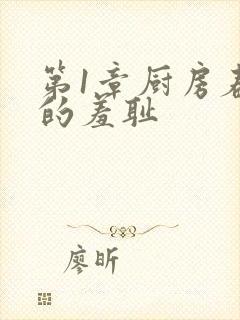 第1章厨房
的羞耻
廖昕